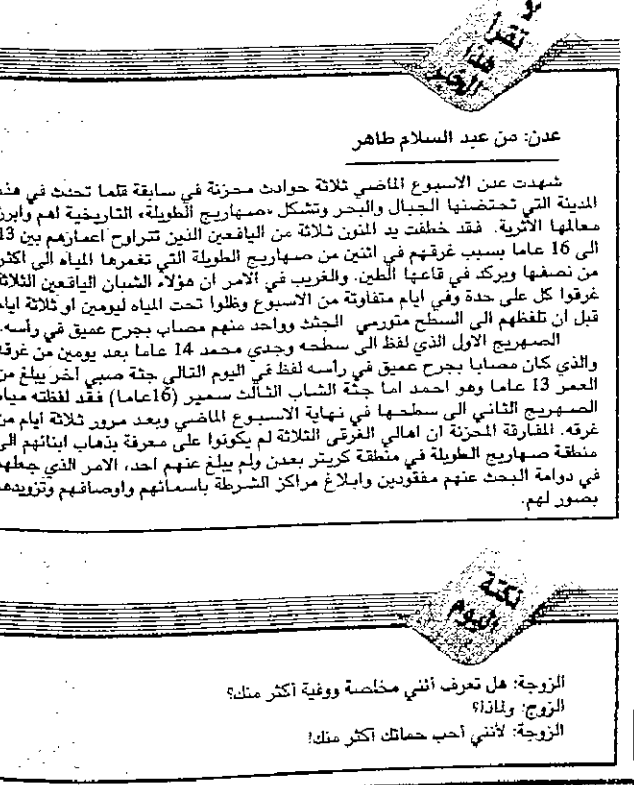 تقرأ
هذا
الخبر
عدن: من عبد السلام طاهر
شهدت عدن الاسبوع الماضي ثلاثة حوادث محزنة في سابقة قلما تحدث في هذه
المدينة التي تحتضنها الجبال والبحر وتشكل «صهاريج الطويلة» التاريخية اهم وأبرز
معالمها الأثرية. فقد خطفت يد المنون ثلاثة من اليافعين الذين تتراوح اعمارهم بين 13
الى 16 عاما بسبب غرقهم في اثنين من صهاريج الطويلة التي تغمرها المياه الى اكثر
من نصفها ويركد في قاعها الطين. والغريب في الامر ان هؤلاء الشبان اليافعين الثلاثة
غرقوا كل على حدة وفي ايام متفاوتة من الاسبوع وظلوا تحت المياه ليومين او ثلاثة ايام
قبل ان تلفظهم الى السطح متورمي الجثث وواحد منهم مصاب بجرح عميق في رأسه.
الصهريج الاول الذي لفظ الى سطحه وجدي محمد 14 عاما بعد يومين من غرقه
والذي كان مصابا بجرح عميق في رأسه لفظ في اليوم التالي جثة صبي آخر يبلغ من
العمر 13 عاما وهو احمد اما جثة الشاب الثالث سمير (16عاما) فقد لفظته مياه
الصهريج الثاني الى سطحها في نهاية الاسبوع الماضي وبعد مرور ثلاثة ايام من
غرقه. المفارقة المحزنة ان اهالي الغرقى الثلاثة لم يكونوا على معرفة بذهاب ابنائهم الى
منطقة صهاريج الطويلة في منطقة كريتر بعدن ولم يبلغ عنهم احد، الامر الذي جعلهم
في دوامة البحث عنهم مفقودين وابلاغ مراكز الشرطة باسمائهم واوصافهم وتزويدها
بصور لهم.
نكتة
اليوم
الزوجة: هل تعرف أنني مخلصة ووفية أكثر منك؟
الزوج: ولماذا؟
الزوجة: لأنني أحب حماتك أكثر منك!